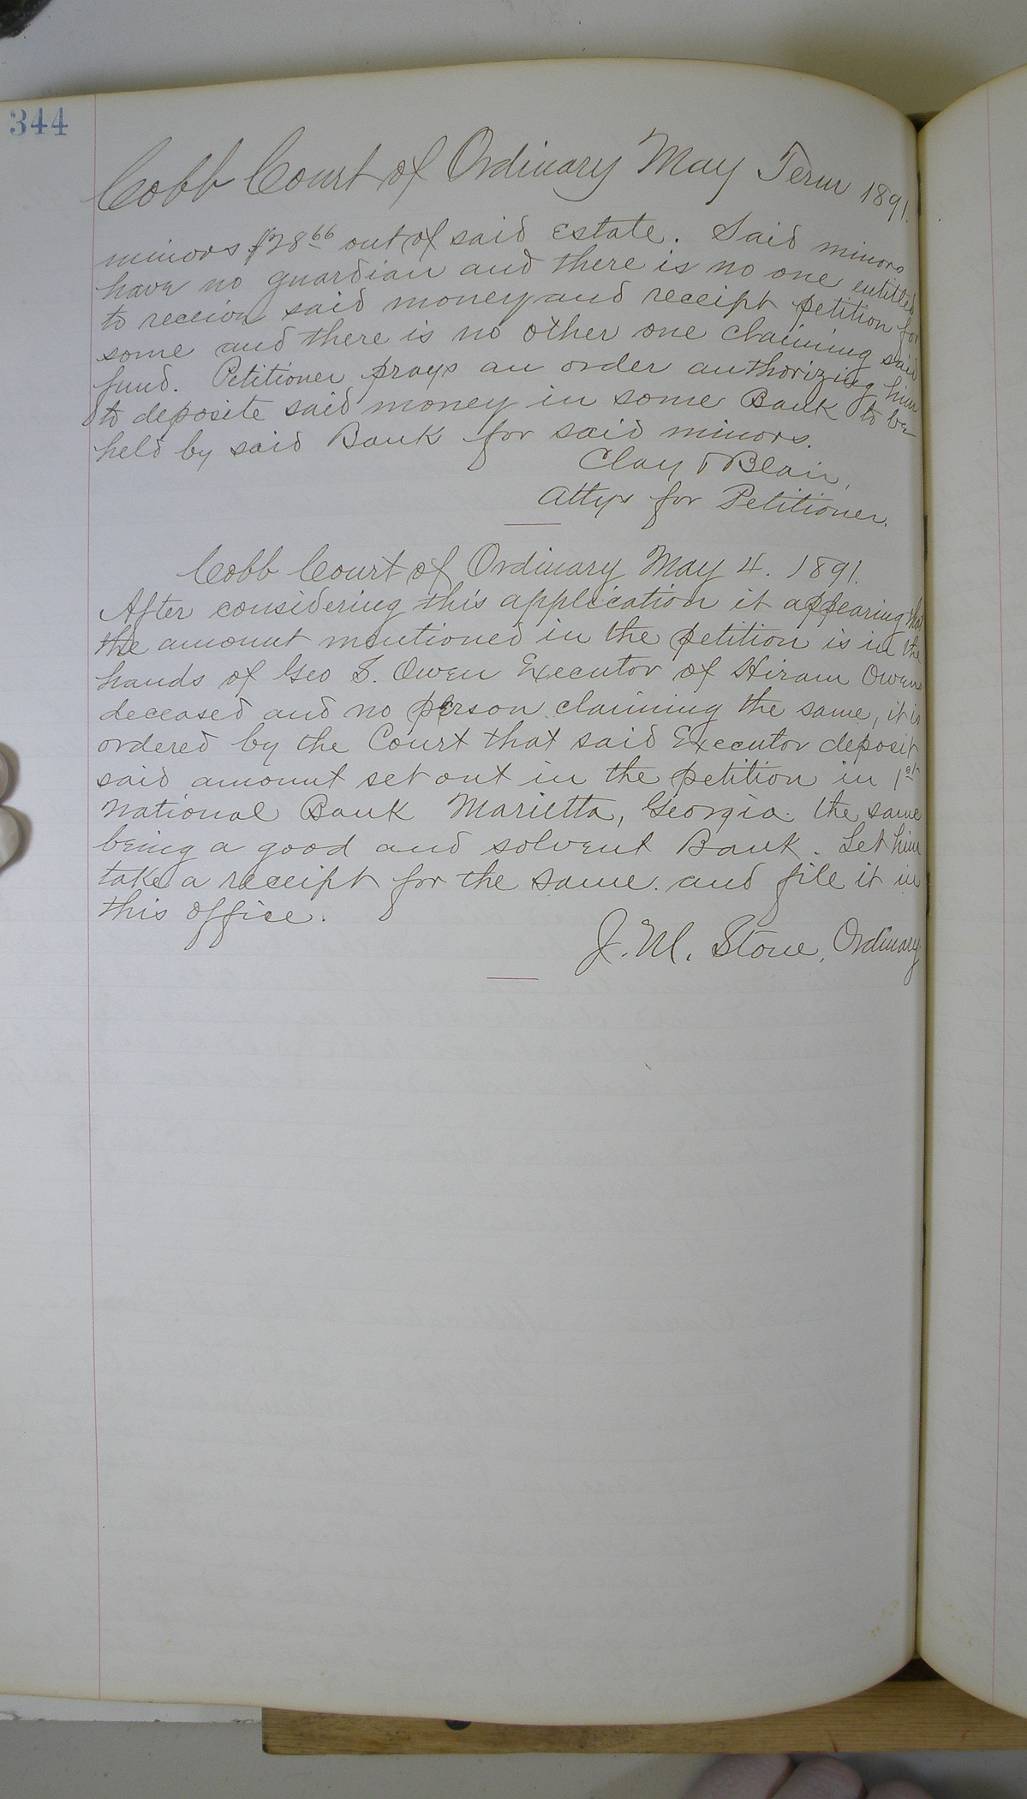 344
Cobb Court of Ordinary May Term 1891.
minors $28⁶⁶ out of said Estate. Said minors
have no guardian and there is no one entitled
to receive said money and receipt petition for
some and there is no other one claiming said
fund. Petitioner prays an order authorizing him
to deposite said money in some Bank to be
held by said Bank for said minors.
Clay & Blair,
Attys for Petitioner.
Cobb Court of Ordinary May 4. 1891.
After considering this application it appearing that
the amount mentioned in the petition is in the
hands of Geo S. Owen Executor of Hiram Owen
deceased and no person claiming the same, it is
ordered by the Court that said Executor deposit
said amount set out in the petition in 1st
National Bank Marietta, Georgia. the same
being a good and solvent Bank. Let him
take a receipt for the same. and file it in
this office.
J. M. Stone, Ordinary